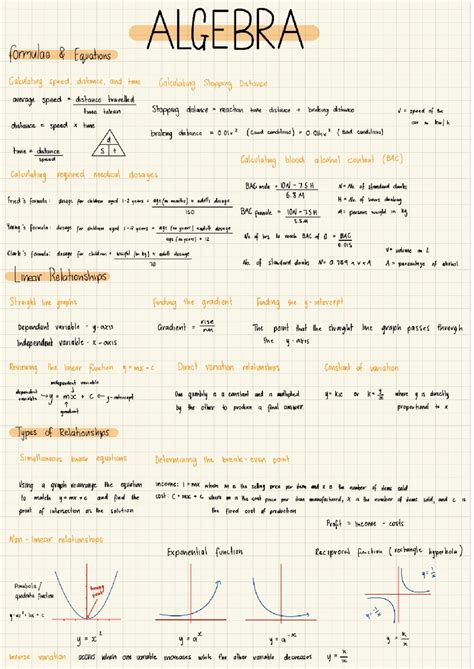 ALGEBRA
formulas & Equations
Calculating speed, distance, and time
Calculating Stopping Distance
average speed = distance travelled
time taken
Stopping distance = reaction time distance + braking distance
v = speed of the
car in km/h
distance = speed x time
D
S t
braking distance = 0.01v² (Good conditions) = 0.014v² (Bad conditions)
time = distance
speed
Calculating blood alcohol content (BAC)
Calculating required medical dosages
BAC male = 10N - 7.5H
6.8M
N = No. of standard drinks
H = No. of hours drinking
M = persons weight in kg
Fried's formula: dosage for children aged 1-2 years = age (in months) x adult dosage
150
BAC female = 10N - 7.5H
5.5M
Young's formula: dosage for children aged 1-12 years = age (in years) x adult dosage
age (in years) + 12
No. of hrs to reach BAC of 0 = BAC
0.015
Clark's formula: dosage for children = weight (in kg) x adult dosage
70
V = volume in L
No. of standard drinks N = 0.789 x V x A
A = percentage of alcohol
Linear Relationships
Straight line graphs
Finding the gradient
Finding the y-intercept
Dependent variable - y-axis
Independent variable - x-axis
Gradient = rise
run
The point that the straight line graph passes through
the y-axis
Reviewing the linear function y = mx + c
Direct variation relationships
Constant of variation
independent variable
dependent variable
y = mx + c
y-intercept
gradient
One quantity is a constant and is multiplied
by the other to produce a final answer
y = kx or k = y/x where y is directly
proportional to x
Types of Relationships
Simultaneous linear equations
Determining the break-even point
Using a graph rearrange the equation
to match y = mx + c and find the
point of intersection as the solution
income: I = mx where m is the selling price per item and x is the number of items sold
cost: C = mx + c where m is the cost price per item manufactured, x is the number of items sold, and c is
the fixed cost of production
Profit = Income - costs
Non-linear relationships
Exponential function
Reciprocal function (rectangle hyperbola)
Parabola /
quadratic function
turning point
y = ax² + bx + c
y = x²
y = aˣ
y = a⁻ˣ
y = k/x
Inverse variation occurs when one variable increases while the other decreases y = k/x